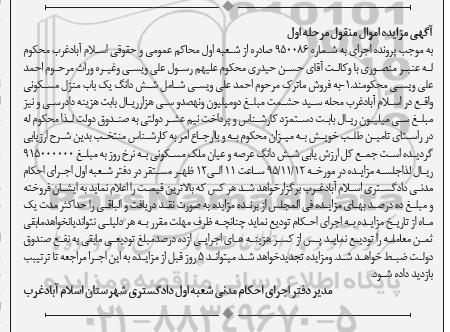 آگهی مزایده اموال منقول مرحله اول
به موجب پرونده اجرای به شماره ۹۵۰۰۸۶ صادره از شعبه اول محاکم عمومی و حقوقی اسلام آبادغرب محکوم
له عنبر منصوری با وکالت آقای حسن حیدری محکوم علیهم رسول علی ویسی وغیره وراث مرحوم احمد
علی ویسی محکومند.۱-به فروش ماترک مرحوم احمد علی ویسی شامل شش دانگ یک باب منزل مسکونی
واقع در اسلام آبادغرب محله سید حشمت مبلغ دومیلیون ونهصدوسی هزارریال بابت هزینه دادرسی و نیز
مبلغ سی میلیون ریال بابت دستمزد کارشناس و پرداخت نیم عشر دولتی به صندوق دولت لذا محکوم له
در راستای تامین طلب خویش به میزان محکوم به و باارجاع امر به کارشناس منتخب بدین شرح ارزیابی
گردیده است جمع کل ارزش یابی شش دانگ عرصه و عیان ملک مسکونی به نرخ روز به مبلغ ۹۱۵۰۰۰۰۰۰
ریال لذاجلسه مزایده در مورخه ۹۵/۱۱/۱۲ ساعت ۱۱ الی۱۲ ظهر مستقر در دفتر شعبه اول اجرای احکام
مدنی دادگستری اسلام آبادغرب برگزارخواهد شد هر کس که بالاترین قیمت را اعلام نماید به ایشان فروخته
و مبلغ ده درصد بهای مزایده فی المجلس از برنده مزایده به صورت نقد دریافت و الباقی را حداکثر مدت یک
ماه از تاریخ مزایده به اجرای احکام تودیع نماید چنانچه ظرف مهلت مقرر به هر دلیلی نتواندیانخواهدمابقی
ثمن معامله را تودیع نماید پس از کسر هزینه های اجرایی ازده درصدمبلغ تودیعی مابقی به نفع صندوق
دولت ضبط خواهد شد ومزایده تجدیدخواهد شد میتواند ۵ روز قبل از مزایده به این اجرا مراجعه تا ترتیب
بازدید داده شود.
مدیر دفتر اجرای احکام مدنی شعبه اول دادگستری شهرستان اسلام آبادغرب
پایگاه اطلاع رسانی مناقصه و مزایده
۰۲۱-۸۸۳۴۹۶۷۰-۵